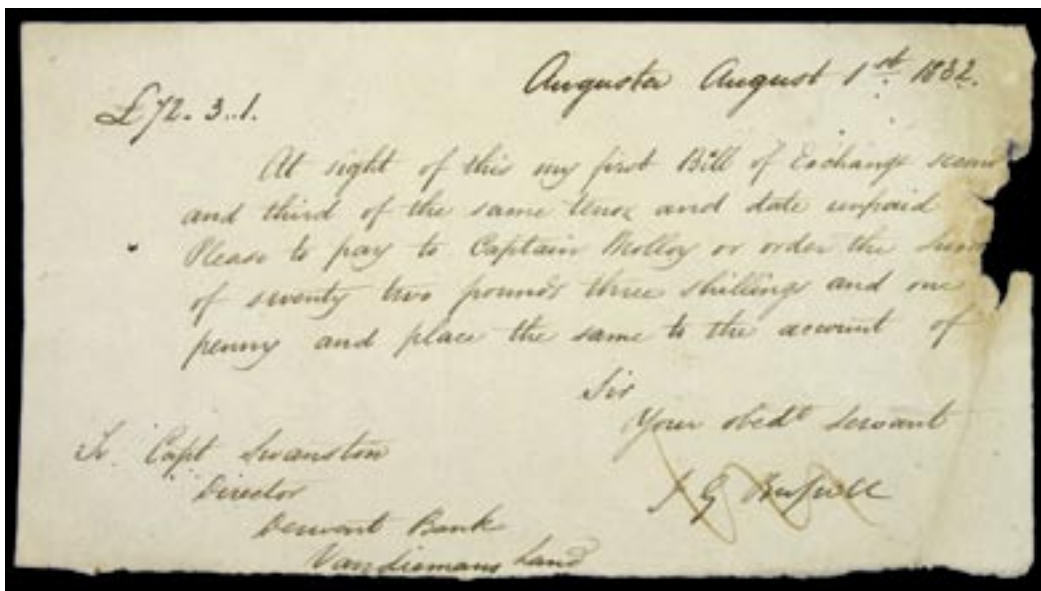 Augusta August 1st 1832.
£72. 3..1.
At sight of this my first Bill of Exchange secon
and third of the same tenor and date unpaid
Please to pay to Captain Molloy or order the sum
of seventy two pounds three shillings and one
penny and place the same to the account of
Sir
Your obedt Servant
J G Bussell
To Capt Swanston
Director
Derwent Bank
Vandiemans Land